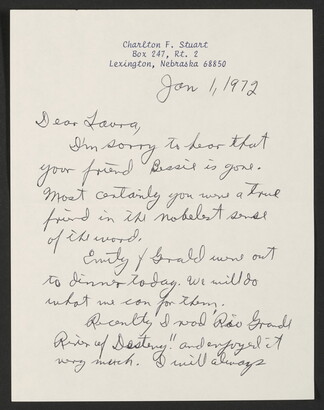 Charlton F. Stuart
Box 247, Rt. 2
Lexington, Nebraska 68850
Jan 1, 1972
Dear Laura,
I'm sorry to hear that
your friend Bessie is gone.
Most certainly you were a true
friend in the nobelest sense
of the word.
Emily & Grald were out
to dinner today. We will do
what we can for them.
Recently I read "Rio Grande
River of Desteny" and enjoyed it
very much. I will always